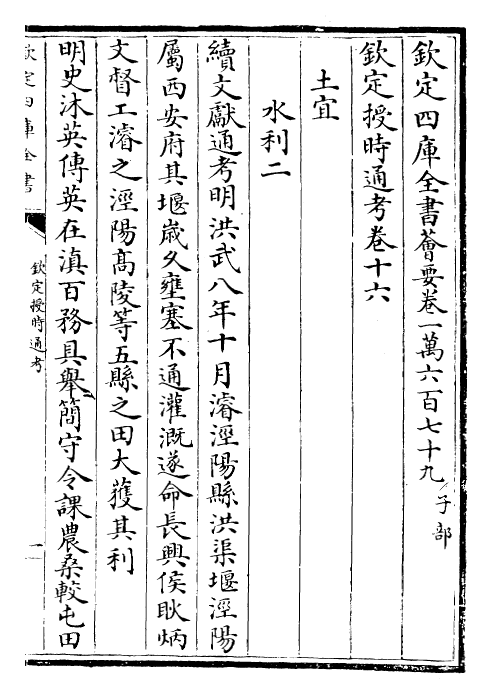 欽定四庫全書薈要卷一萬六百七十九 子部
欽定授時通考卷十六
土宜
水利二
續文獻通考明洪武八年十月濬涇陽縣洪渠堰涇陽
屬西安府其堰歲久壅塞不通灌溉遂命長興侯耿炳
文督工濬之涇陽髙陵等五縣之田大獲其利
明史沐英傳英在滇百務具舉簡守令課農桑較屯田
欽定四庫全書
欽定授時通考
一